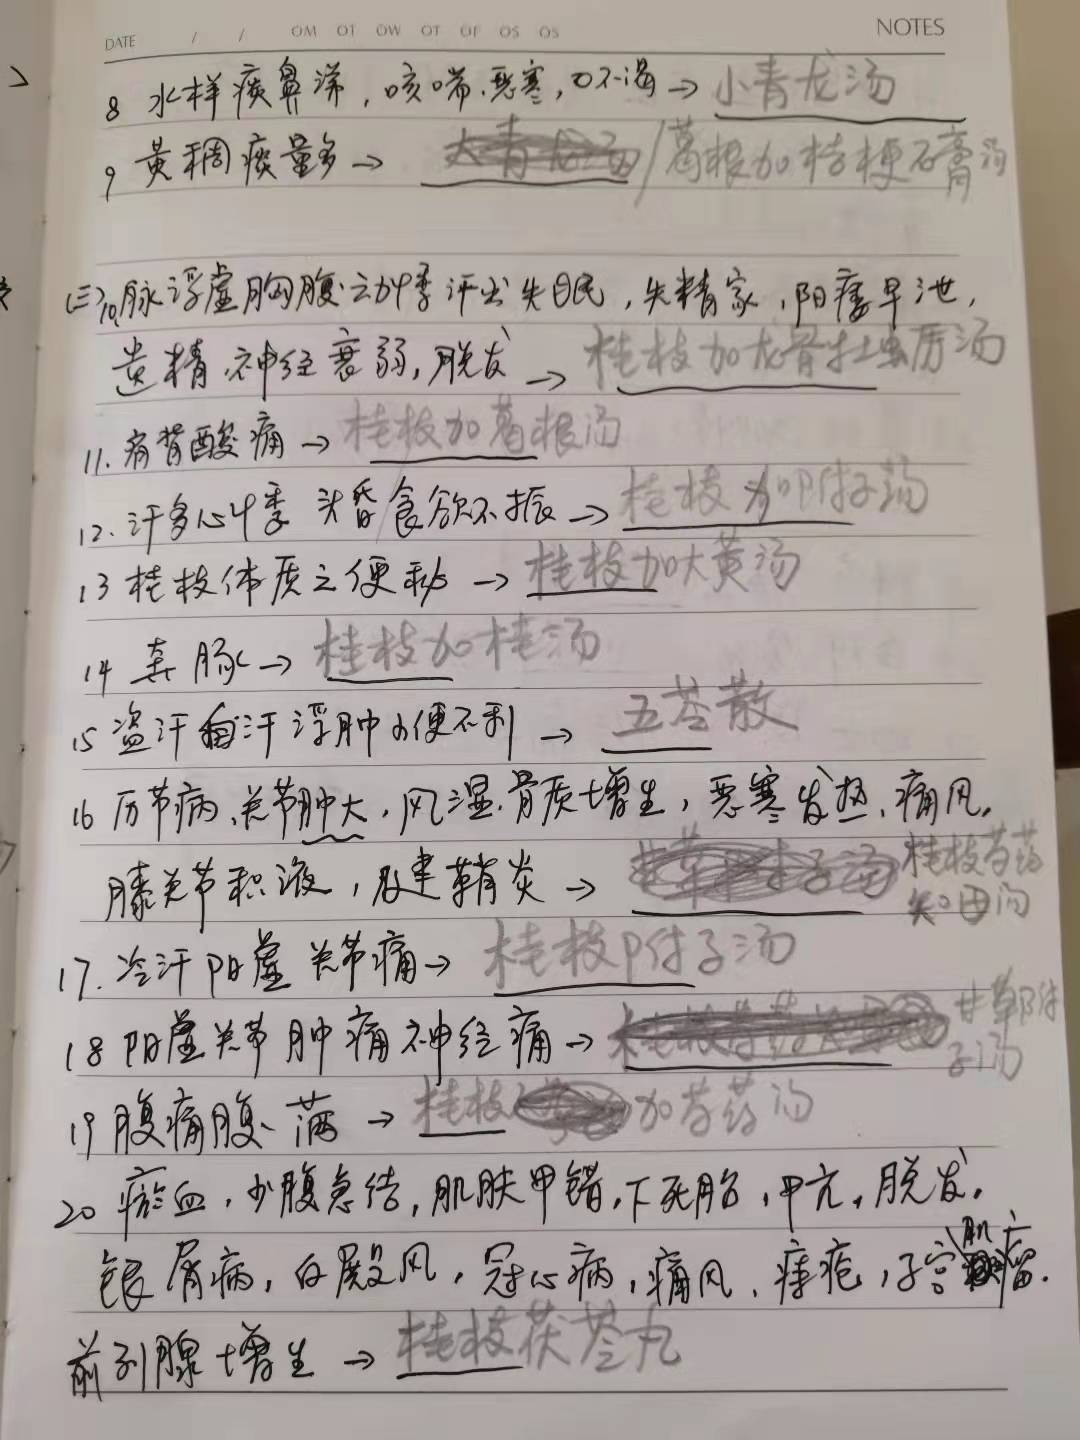 DATE / / NOTES
8 水样痰鼻涕，咳喘.恶寒，口不渴→小青龙汤
9 黄稠痰量多→ 大青龙汤/葛根加桔梗石膏汤
(三)10.脉浮虚胸腹动悸汗出失眠，失精家，阳痿早泄，
遗精.神经衰弱，脱发→桂枝加龙骨牡蛎汤
11.肩背酸痛→桂枝加葛根汤
12.汗多心悸 头昏食欲不振→桂枝加附子汤
13 桂枝体质之便秘→桂枝加大黄汤
14 奔豚→桂枝加桂汤
15 盗汗自汗浮肿小便不利→五苓散
16 历节病、关节肿大，风湿.骨质增生，恶寒发热、痛风.
膝关节积液，腱鞘炎→ 桂枝芍药
知母汤
17.冷汗阳虚关节痛→桂枝附子汤
18 阳虚关节肿痛神经痛→ 甘草附
子汤
19 腹痛腹满→桂枝 加芍药汤
20 瘀血，少腹急结，肌肤甲错，下死胎，甲亢，脱发，
银屑病，白殿风，冠心病，痛风、痤疮，子宫肌瘤.
前列腺增生→桂枝茯苓丸